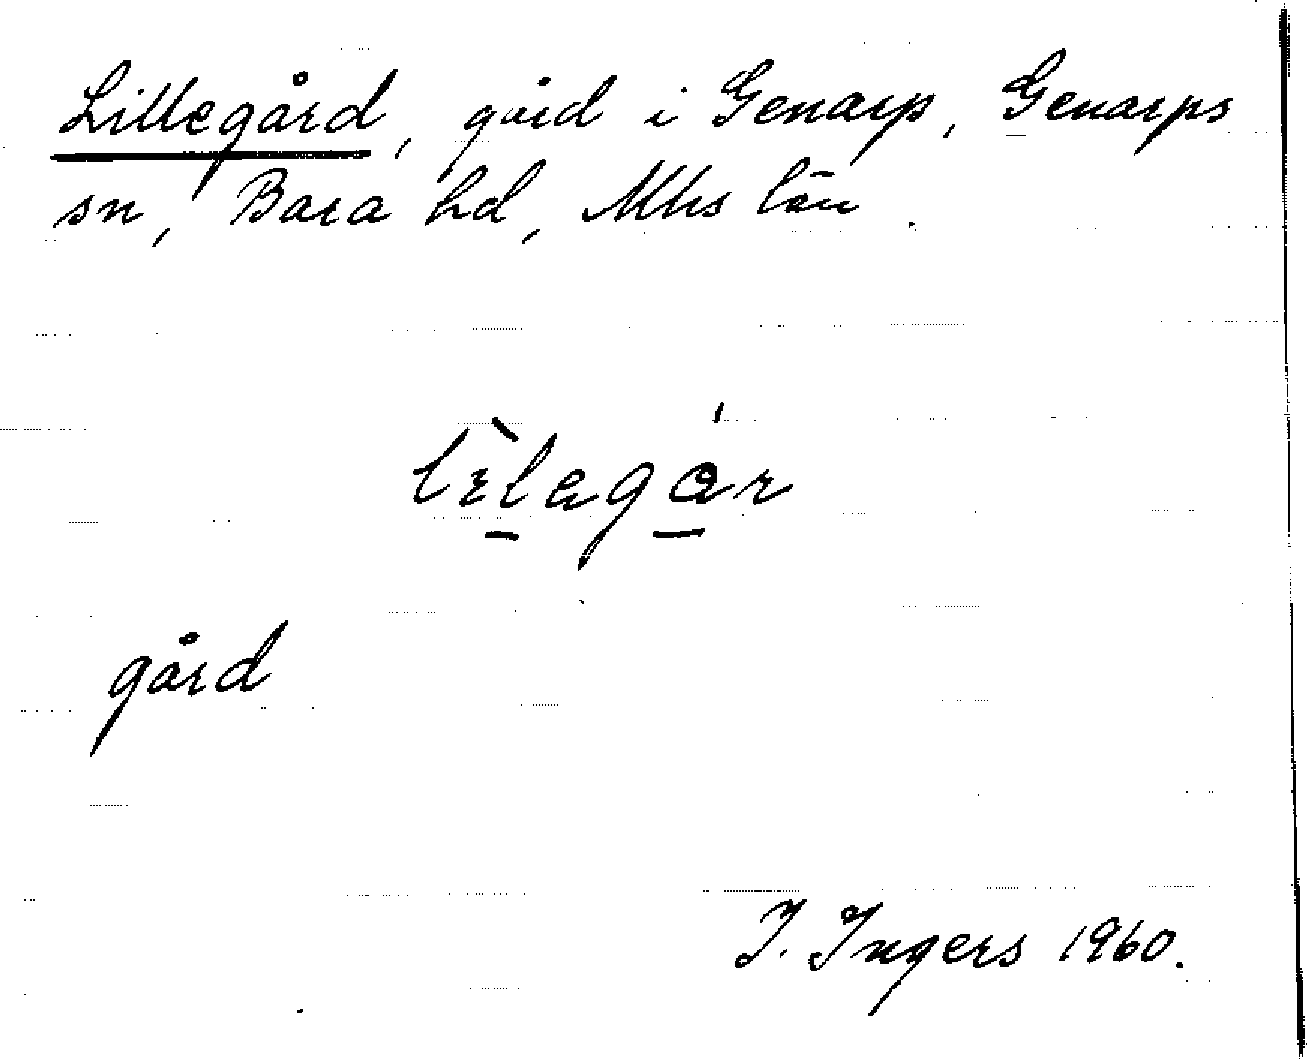 Lillegård, gård i Genarp, Genarps
sn, Bara hd, Mhs län.
gård
I. Ingers 1960.